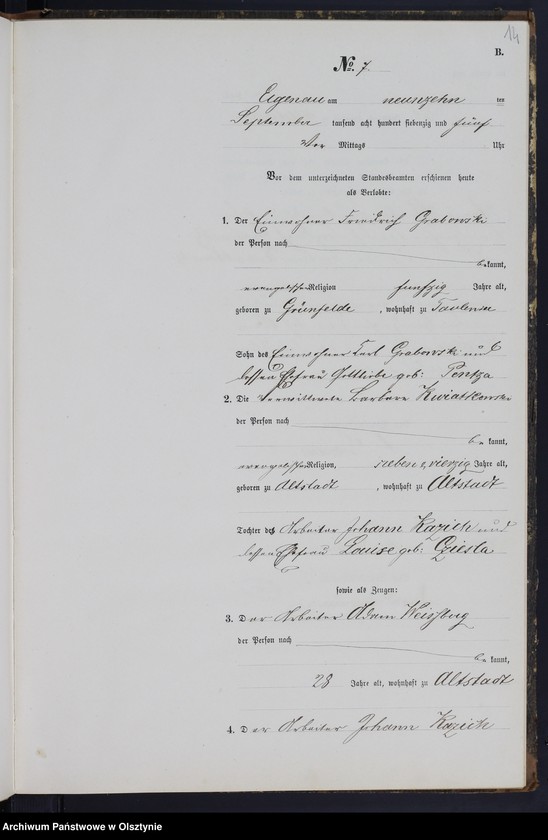 14
B.
No. 7.
Eigenau am neunzehn ten
September tausend acht hundert siebenzig und fünf
Vor Mittags Uhr
Vor dem unterzeichneten Standesbeamten erschienen heute
als Verlobte:
1. Der Einwohner Friedrich Grabowski
der Person nach
bekannt,
evangelischer Religion funfzig Jahre alt,
geboren zu Grünfelde, wohnhaft zu Taulensee
Sohn des Einwohner Karl Grabowski und
dessen Ehefrau Gottliebe geb:
2. Die verwittwete Barbara Kwiatkowska
der Person nach
bekannt,
evangelischer Religion, sieben u. vierzig Jahre alt,
geboren zu Altstadt, wohnhaft zu Altstadt
Tochter des Arbeiter Johann Kazich und
dessen Ehefrau Louise geb: Cziesla
sowie als Zeugen:
3. Der Arbeiter Adam
der Person nach
bekannt,
28 Jahre alt, wohnhaft zu Altstadt
4. Der Arbeiter Johann Kazich
Archiwum Państwowe w Olsztynie